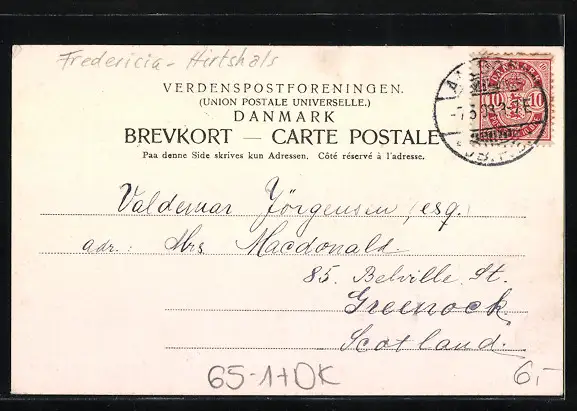 Fredericia - Hirtshals
VERDENSPOSTFORENINGEN.
(UNION POSTALE UNIVERSELLE.)
DANMARK
BREVKORT — CARTE POSTALE
Paa denne Side skrives kun Adressen. Côté réservé à l'adresse.
10 10
Valdemar Jörgensen, esq.
adr.: Mrs Macdonald
85. Belville St.
Greenock.
Scotland.
65-1+DK
6,-